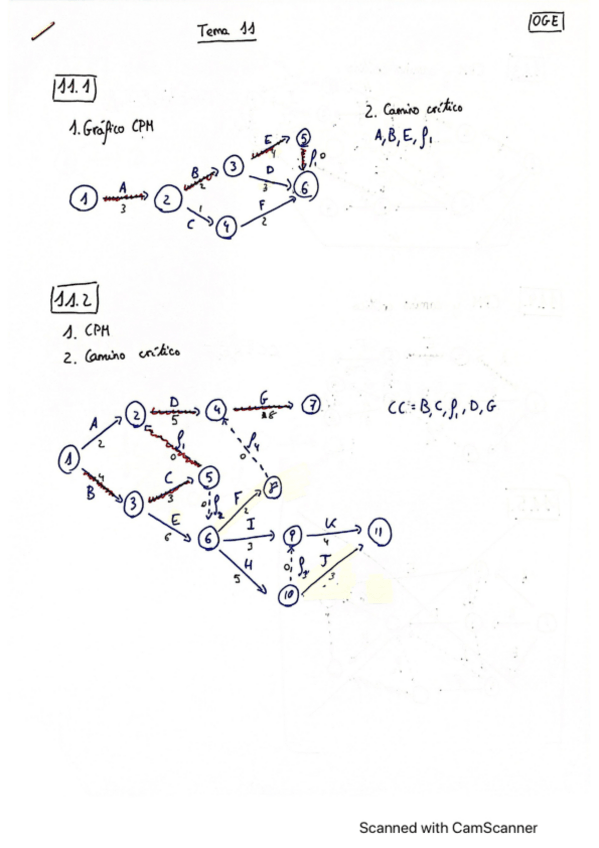 Tema 11
OGE
11.1
1. Gráfico CPM
2. Camino crítico
A, B, E, ρ₁
1 A 3 2 B 2 3 E 4 5 ρ₁ 0
D 3 6
C 1 4 F 2
11.2
1. CPM
2. Camino crítico
CC = B, C, ρ₁, D, G
1 A 2 2 D 5 4 G 7
ρ₁ 0 ρ₄ 0
B 4 3 C 3 5 0 ρ₂ F 2 8
E 6 6 I 3 9 K 4 11
H 5 10 0 ρ₃ J 3
Scanned with CamScanner